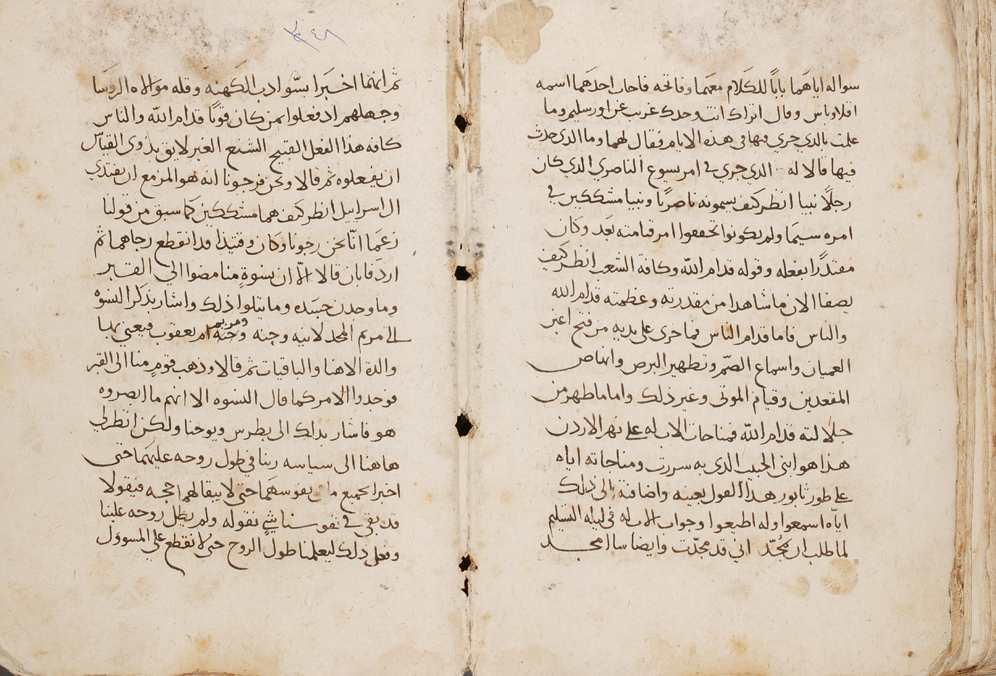 سواله اياهما باباً للكلام معهما وفاتحه فاجاب احدهما اسمه
اقلاوباس وقال اتراك انت وحدك غريب عن اورسليم وما
علمت بالذي جري فيها في هذه الايام فقال لهما وما الذي حدث
فيها قالا له الذي جري في امر يسوع الناصري الذي كان
رجلًا نبيا انظر كيف يسمونه ناصريًا ونبيا مشككين في
امره سيما ولم يكونوا تحققوا امر قيامته بعد وكان
مقتدرًا بفعله وقوله قدام الله وكافة الشعب انظر كيف
يصفا الان ما شاهدا من مقدرته وعظمته قدام الله
والناس فاما قدام الناس فما جرى على يديه من فتح اعين
العميان واسماع الصم وتطهير البرص وانهاض
المقعدين وقيام الموتى وغير ذلك واما ما ظهر من
جلالته قدام الله فمناجات الاب له على نهر الاردن
هذا هو ابني الحبيب الذي به سررت ومناجاته اياه
على طور ثابور بهذا القول بعينه واضافته الى ذلك
اياه اسمعوا وله اطيعوا وجواب الاب له في ليلة السليم
لما طلب ان يمُجّد اني قد مجدّت وايضا سامجد
ثم انهما اخبرا بسوّ ادب الكهنة وقله موالاه الروسا
وجهلهم اذ فعلوا بمن كان قويًا قدام الله والناس
كافه هذا الفعل القبيح الشنع الغير لايق بذوى القبايل
ان يفعلوه ثم قالا ونحن فرجونا انه هو المزمع ان يفتدي
ال اسراييل انظر كيف هما مشككين كما سبق من قولنا
زعما انا نحن رجونا وكان وقتيذا قد انقطع رجاهما ثم
اردفا بان قالا الا ان نسوةٍ منا مضوا الى القبر
وما وجدن جسده وما يتلوا ذلك واشار بذكر النسوه
الى مريم المجدلانيه وحنه ومريم ام يعقوب فيعني بها
والدة الاهنا والباقيات ثم قالا وذهب قوم منا الى القبر
فوجدوا الامر كما قال النسوه الا انهم ما ابصروه
هو فاشار بذلك الى بطرس ويوحنا ولكن انظر لي
هاهنا الى سياسه ربنا في طول روحه عليهما حتى
اخبرا بجميع ما في نفوسهما حتى لا يبقا لهما حجه فيقولا
قد بقي في نفوسنا شي نقوله ولم يطل روحه علينا
وفعل ذلك ليعلمنا طول الروح حتى لا نقطع على المسوول